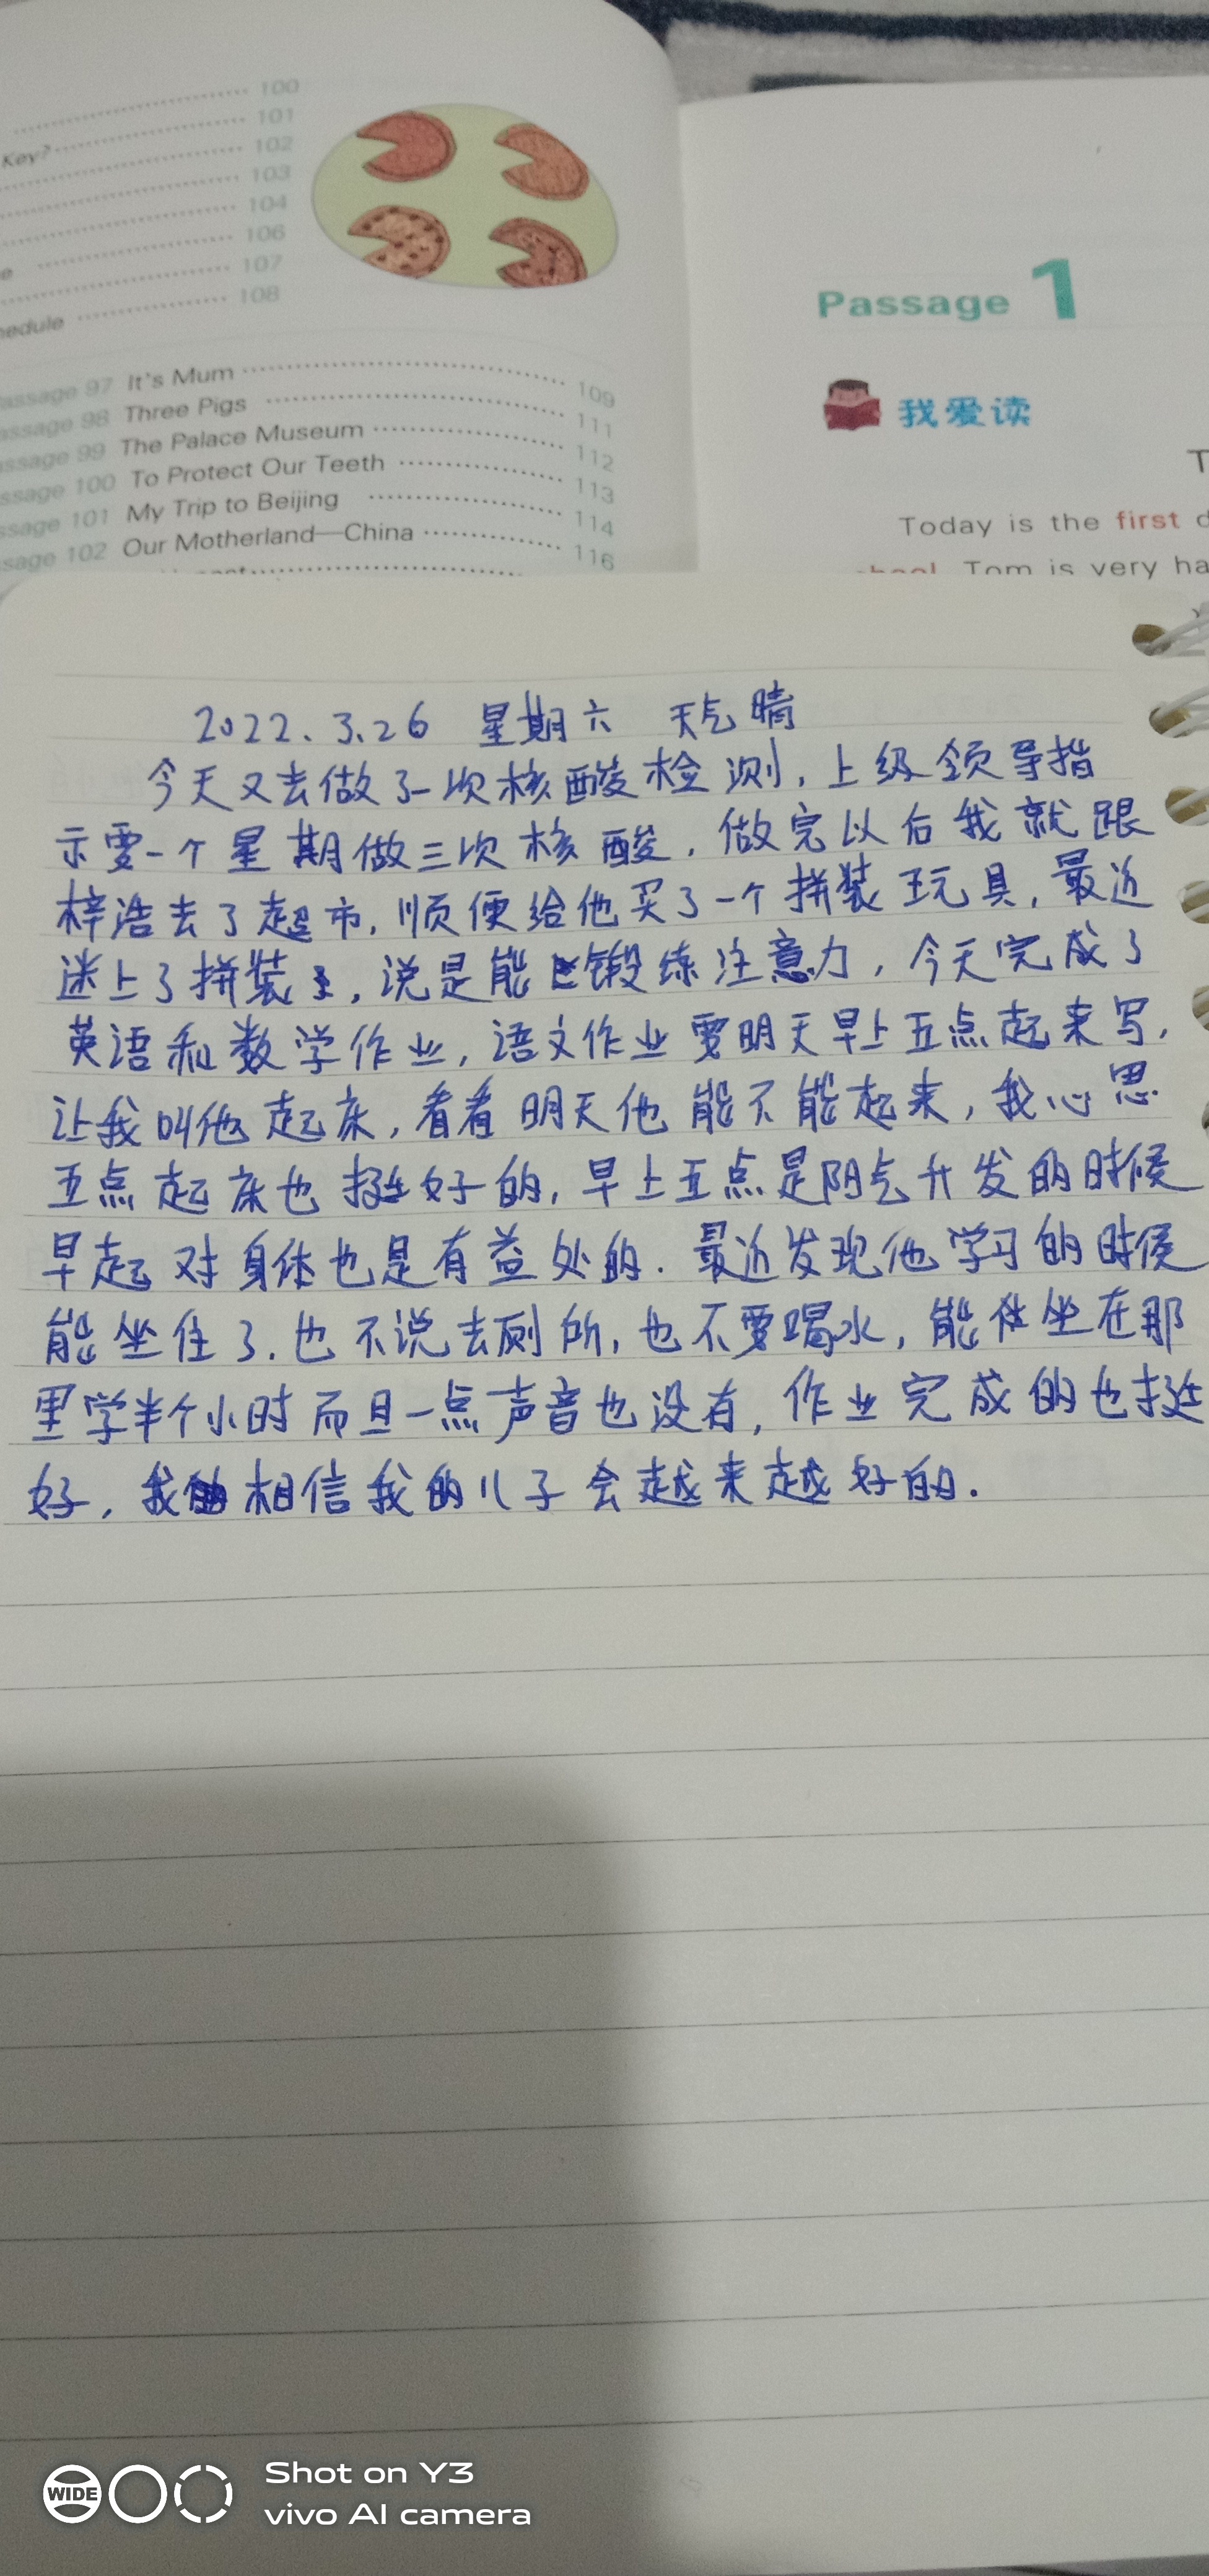 100
Key? 101
102
103
104
e 106
107
hedule 108
assage 97 It's Mum 109
assage 98 Three Pigs 111
assage 99 The Palace Museum 112
ssage 100 To Protect Our Teeth 113
ssage 101 My Trip to Beijing 114
sage 102 Our Motherland—China 116
Passage 1
我爱读
T
Today is the first d
hool. Tom is very ha
2022.3.26 星期六 天气晴
今天又去做了一次核酸检测,上级领导指
示要一个星期做三次核酸,做完以后我就跟
梓浩去了超市,顺便给他买了一个拼装玩具,最近
迷上了拼装,说是能锻练注意力,今天完成了
英语和数学作业,语文作业要明天早上五点起来写,
让我叫他起床,看看明天他能不能起来,我心思
五点起床也挺好的,早上五点是阳气升发的时候
早起对身体也是有益处的.最近发现他学习的时候
能坐住了.也不说去厕所,也不要喝水,能坐在那
里学半个小时而且一点声音也没有,作业完成的也挺
好,我相信我的儿子会越来越好的.
WIDE
Shot on Y3
vivo AI camera